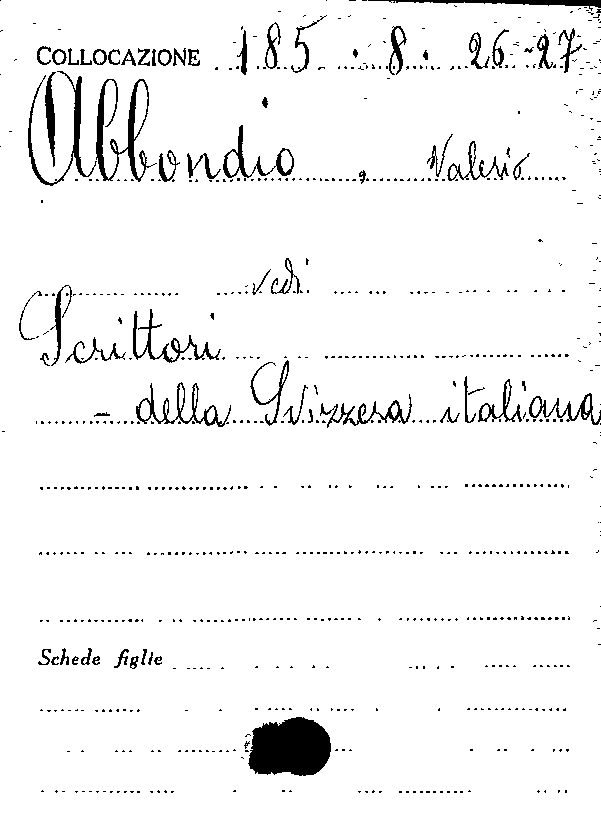 COLLOCAZIONE 185.8.26-27
Abbondio, Valerio
vedi
Scrittori
- della Svizzera italiana
Schede figlie